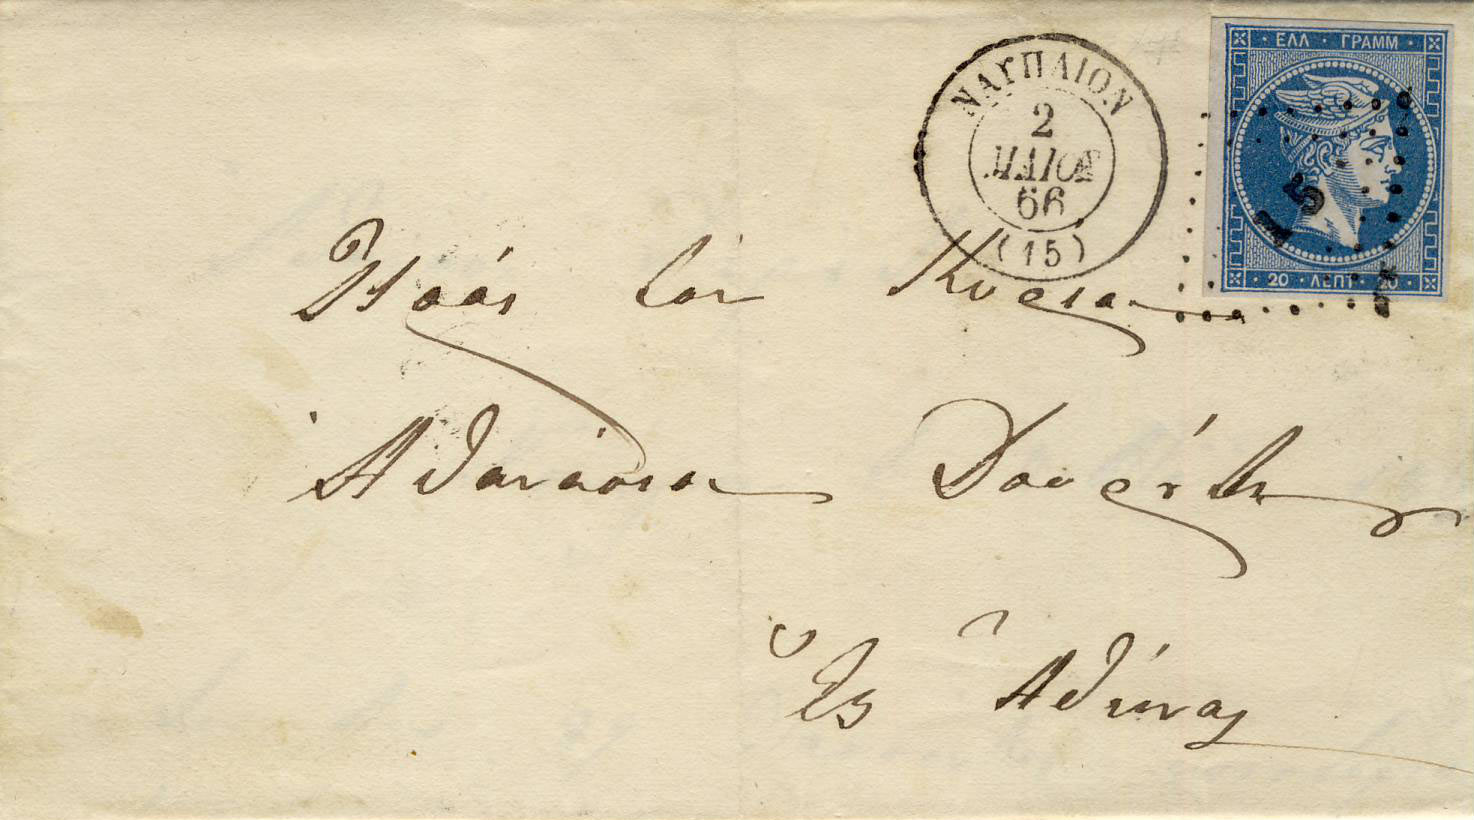 ΕΛΛ · ΓΡΑΜΜ
20 · ΛΕΠΤ · 20
15
ΝΑΥΠΛΙΟΝ
2
ΜΑΙΟΣ
66
(15)
Πρὸς τὸν Κύριον
Ἀθανάσιον
Εἰς Ἀθήνας